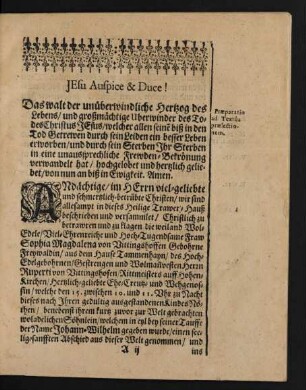 JEsu Auspice & Duce!
Das walt der unüberwindliche Hertzog des
Lebens / und großmächtige Uberwinder des To-
des Christus JEsus / welcher allen seine biß in den
Tod Getrewen durch sein Leiden ein besser Leben
erworben / und durch sein Sterben Ihr Sterben
in eine unaussprechliche Frewden-Bekrönung
verwandelt hat / hochgelobet und hertzlich gelie-
bet / von nun an biß in Ewigkeit. Amen.
Præparatio
ad Textûs
prælectio-
nem.
ANdächtige / im HErrn viel-geliebte
und schmertzlich-betrübte Christen / wir sind
allesampt in dieses Heilige Trawer-Hauß
beschrieben und versammlet / Christlich zu
betrawren und zu klagen die weiland Wol-
Edele / Viel-Ehrenreiche und Hoch-Tugendsame Fraw
Sophia Magdalena von Vittingshoffen Gebohrne
Freywaldin / aus dem Hause Tammenhayn / des Hoch-
Edelgebohrnen / Gestrengen und Wolmaßvesten Herrn
Ruperti von Vittingshofen Rittmeisters auff Hohen-
Kirchen / Hertzlich-geliebte Ehe-Creutz- und Wehgenos-
sin / welche den 15. zwischen 10. und 11. Uhr zu Nacht
dieses nach Ihren gedultig ausgestandenen Kindes Nö-
then / benebenst ihrem kurtz zuvor zur Welt gebrachten
woladelichen Söhnlein / welchem in eyl bey seiner Tauffe
der Name Johann-Wilhelm gegeben wurde / einen see-
lig-sanfften Abschied aus dieser Welt genommen / und
A ij
ins